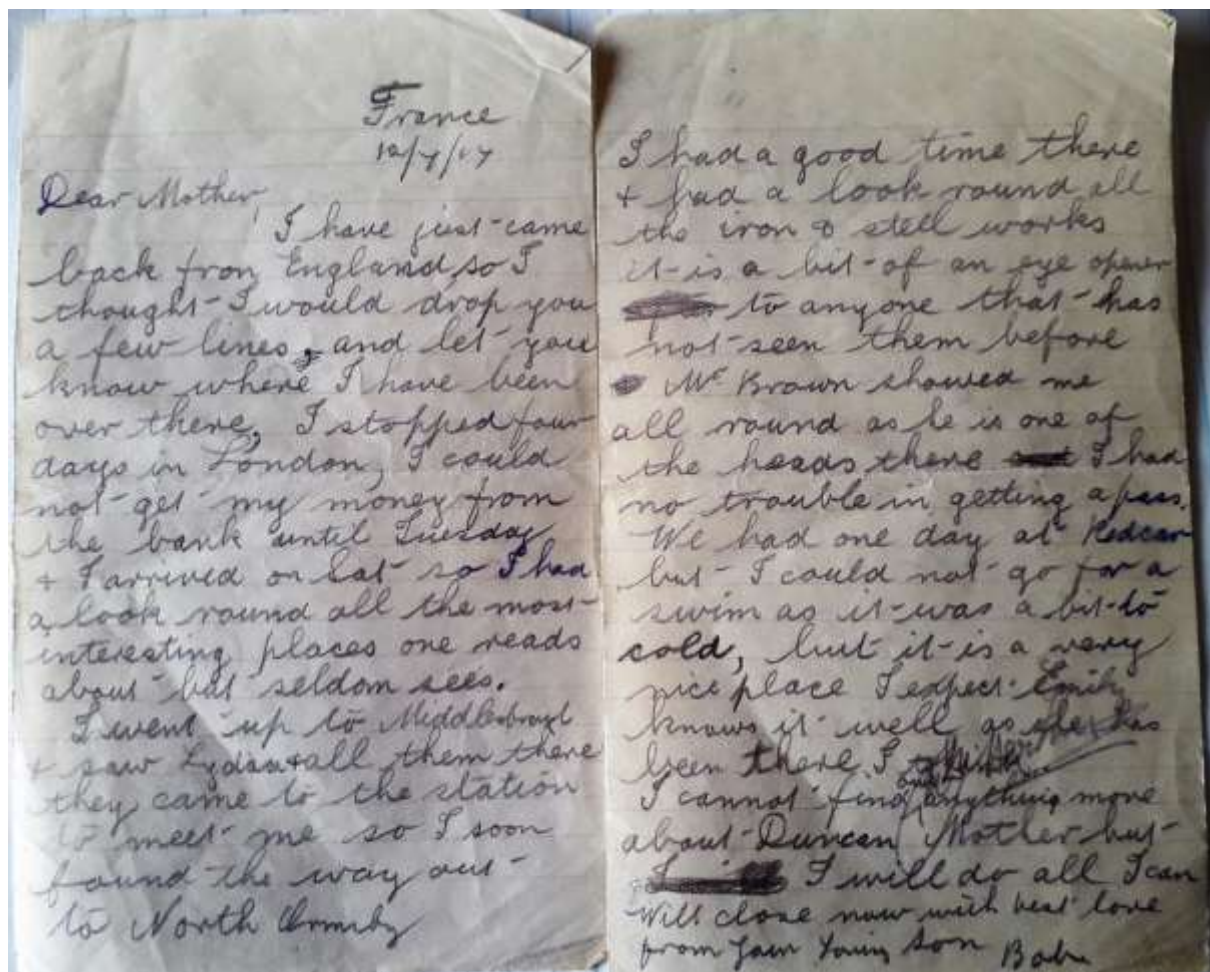 France
12/4/17
Dear Mother,
I have just came
back fron England, so I
thought I would drop you
a few lines, and let you
know where I have been
over there, I stopped four
days in London, I could
not get my money from
the bank until Tuesday
+ I arrived on Sat so I had
a look round all the most
interesting places one reads
about but seldom sees.
I went up to Middlesbrough
+ saw Lydia + all them there
they came to the station
to meet me so I soon
found the way out
to North Ormsby
I had a good time there
+ had a look round all
the iron & stell works
it is a bit of an eye opener
to anyone that has
not seen them before
Mr Brown showed me
all round as he is one of
the heads there I had
no trouble in getting a pass.
We had one day at Redcar
but I could not go for a
swim as it was a bit to
cold, but it is a very
nice place I expect Emily
knows it well as she has
been there I
I cannot find anything more
about Duncan Mother but
I will do all I can
Will close now with best love
from Your son Bob